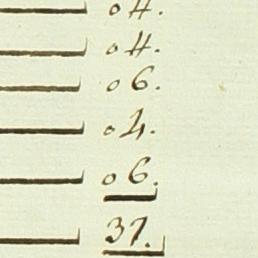 04.
04.
06.
04.
06.
37.